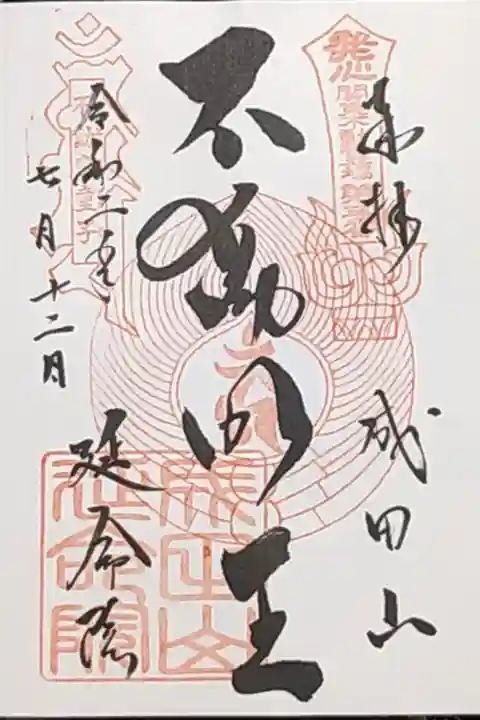 奉拝
成田山
不動明王
令和二年
七月十二日
延命院
成田山
延命院